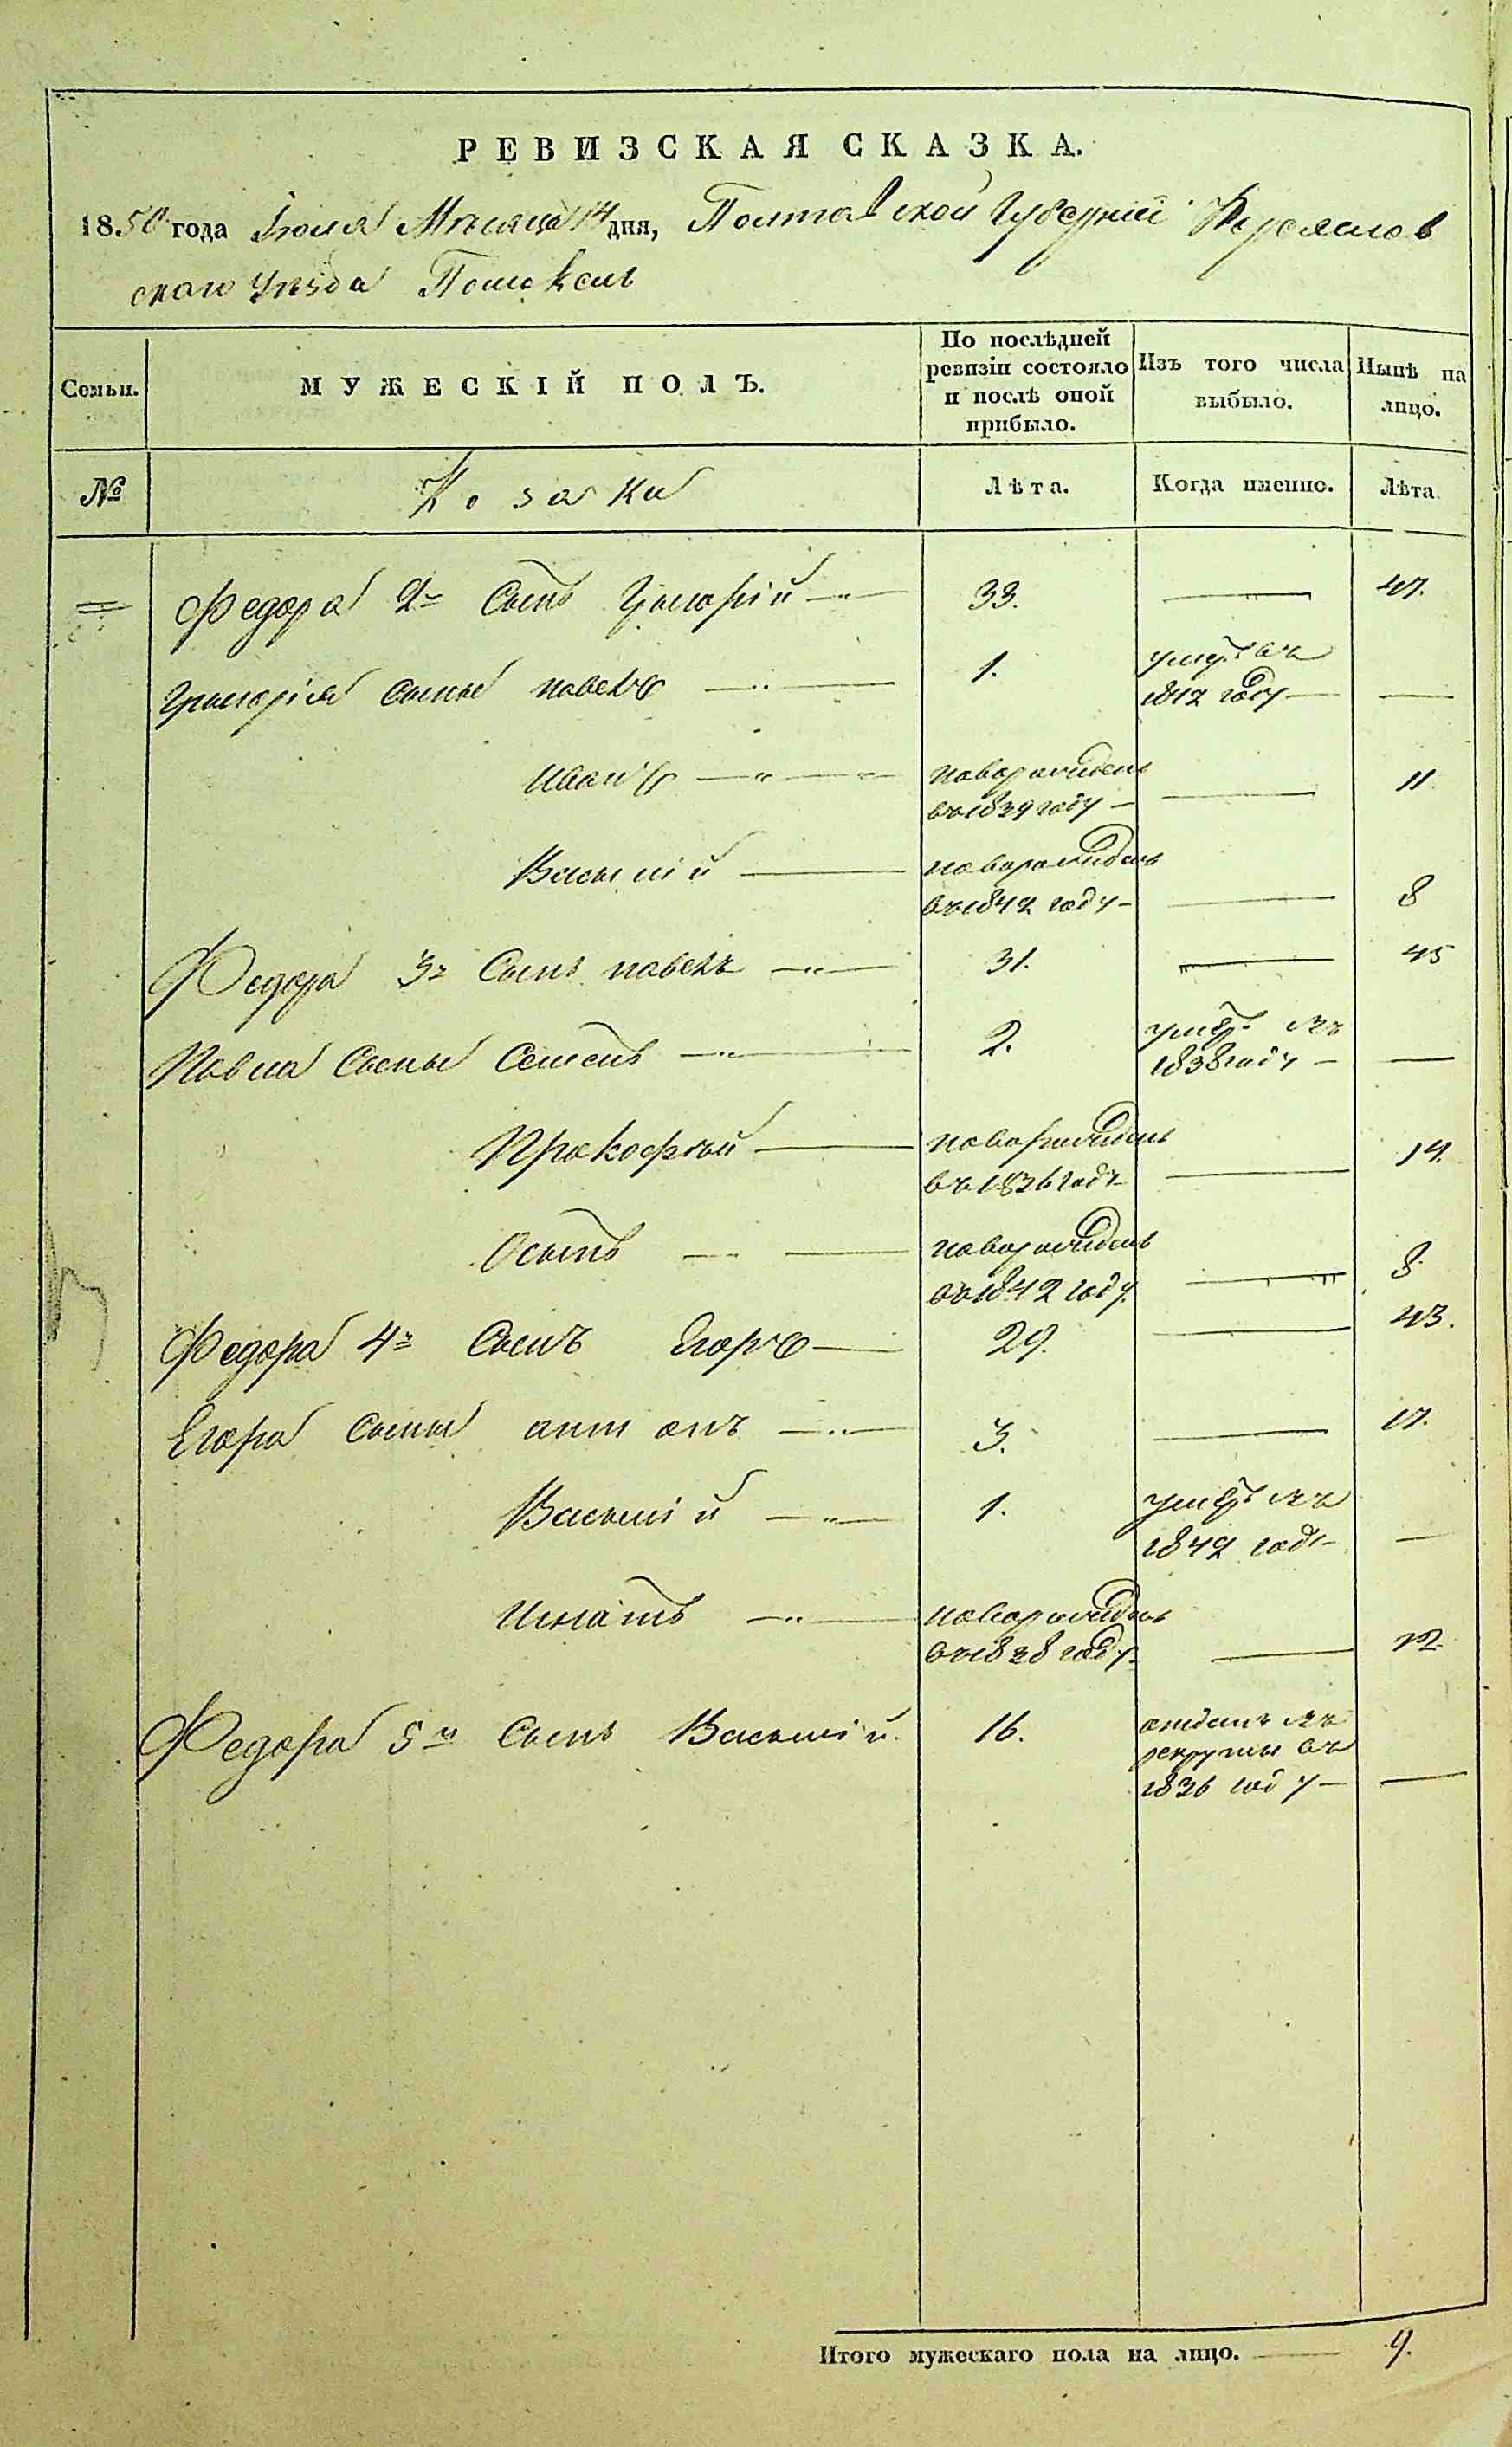 РЕВИЗСКАЯ СКАЗКА.
1850 года Іюля Мѣсяца 14 дня, Полтавской Губерніи
скаго Уѣзда
Семьи.
МУЖЕСКІЙ ПОЛЪ.
По послѣдней ревизіи состояло и послѣ оной прибыло.
Изъ того числа выбыло.
Нынѣ на лицо.
№
Козаки
Лѣта.
Когда именно.
Лѣта
Федора 2й Сынъ Григорій 33. 47.
Григорія Сыны Павелъ 1. умеръ въ
1842 году
Иванъ новорожденъ
въ 1839 году 11
Василій новорожденъ
въ 1842 году 8
Федора 3й Сынъ Павелъ 31. 45
Павла Сыны Семенъ 2. умеръ въ
1838 году
Прокофій новорожденъ
въ 1836 году 14.
Осипъ новорожденъ
въ 1842 году 8.
Федора 4й Сынъ Егоръ 29. 43.
Егора Сыны Антонъ 3. 17.
Василій 1. умеръ въ
1842 году
Игнатъ новорожденъ
въ 1838 году 12
Федора 5й Сынъ Василій. 16. отданъ въ
рекруты въ
1836 году
Итого мужескаго пола на лицо. 9.